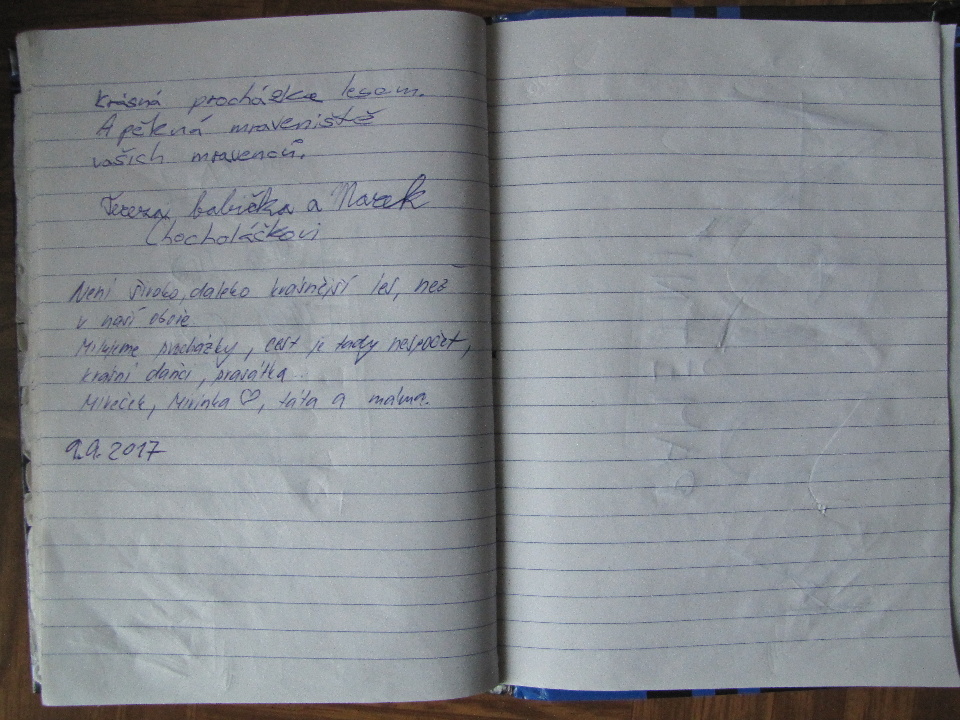 Krásná procházka lesem.
A pěkná mraveniště
vašich mravenců.
Tereza, babička a Marek
Chocholáčkovi
Není široko, daleko krásnější les, než
v naší oboře
Milujeme procházky, cest je tady nespočet,
krásní daňci, prasátka
Mireček, Mirinka ♡, táta a máma.
9.9.2017